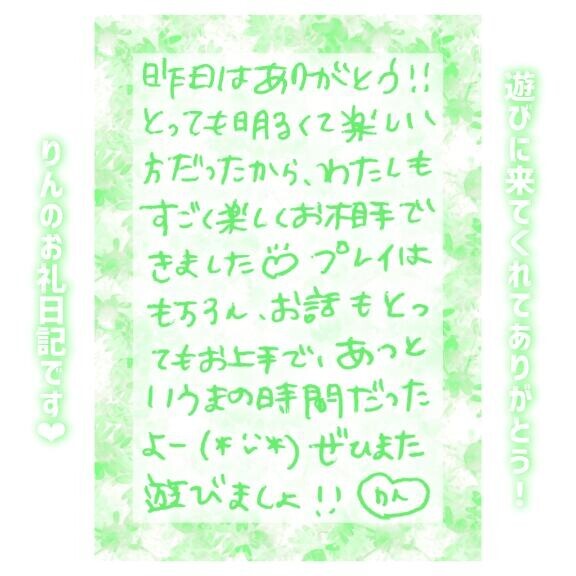 遊びに来てくれてありがとう!
昨日はありがとう!!
とっても明るくて楽しい
方だったから、わたしも
すごく楽しくお相手で
きました♡ プレイは
もちろん、お話もとっ
てもお上手で、あっと
いうまの時間だった
よー(*´`*)ぜひまた
遊びましょ!!
りん
りんのお礼日記です❤